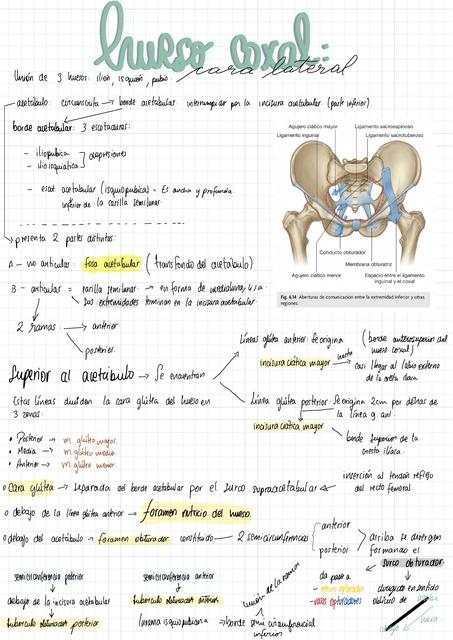 hueso coxal:
cara lateral
Unión de 3 huesos: ilion, isquion, pubis.
acetábulo: circunscrita → borde acetabular interrumpido por la incisura acetabular (parte inferior)
borde acetabular: 3 escotaduras:
- iliopubica
- ilioisquiatica
depresiones
- escot. acetabular (isquiopubica) = Es ancha y profunda.
inferior de la carilla semilunar
presenta 2 partes distintas:
A - no articular: fosa acetabular (transfondo del acetábulo)
B - articular = carilla semilunar → en forma de medialuna, lisa.
Sus extremidades terminan en la incisura acetabular
2 ramas: → anterior
posterior.
Agujero ciático mayor
Ligamento sacroespinoso
Ligamento inguinal
Ligamento sacrotuberoso
Conducto obturador
Membrana obturatriz
Agujero ciático menor
Espacio entre el ligamento inguinal y el coxal
Fig. 6.14 Aberturas de comunicación entre la extremidad inferior y otras regiones.
Superior al acetábulo → Se encuentran
Líneas glútea anterior: Se origina (borde anterosuperior del hueso coxal)
incisura ciática mayor hasta casi llegar al labio externo de la cresta iliaca
Línea glútea posterior: Se origina 2cm por detras de la línea g ant.
incisura ciática mayor
borde superior de la cresta iliaca.
Estas líneas dividen la cara glútea del hueso en
3 zonas:
• Posterior → m. glúteo mayor.
• Media → m. glúteo medio.
• Anterior → m. glúteo menor.
cara glútea → separada del borde acetabular por el surco supraacetabular ← inserción al tendón reflejo del recto femoral
o debajo de la línea glútea anterior → foramen nutricio del hueso
o debajo del acetábulo → foramen obturador constituido → 2 semicircunferencias
anterior
posterior
arriba se divergen formando el
surco obturador
da paso a
- nervio obturador
- vasos obturadores
dirigido en sentido oblicuo de
semicircunferencia posterior
debajo de la incisura acetabular
tuberculo obturador posterior
semicircunferencia anterior
tuberculo obturador anterior
borde semicircunferencial inferior
abajo
hacia